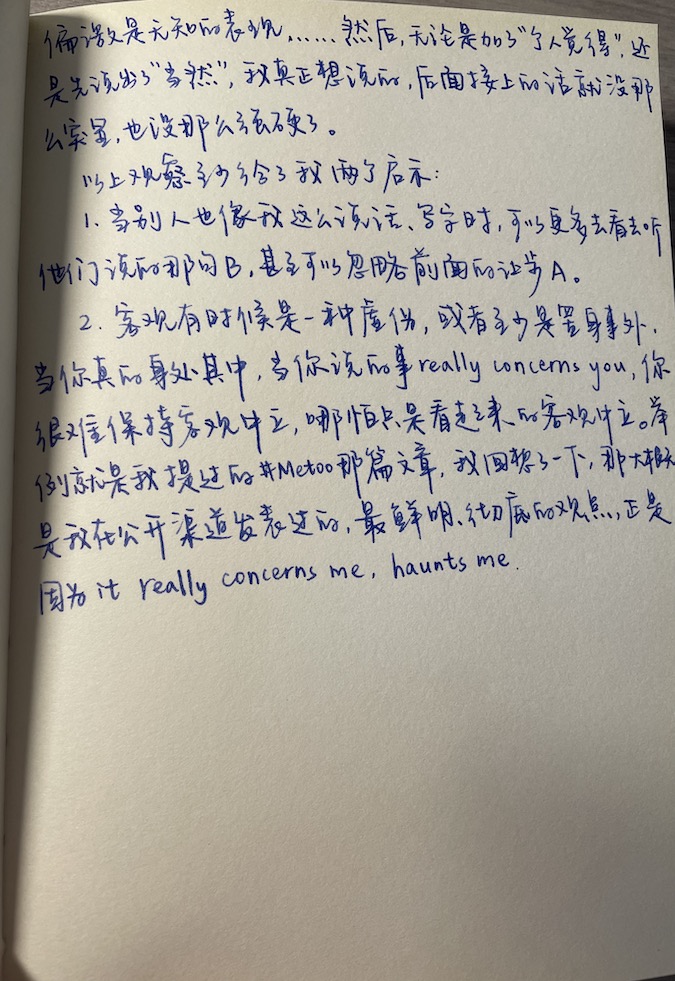 偏激又是无知的表现……然后,无论是加了"个人觉得",还
是先说出了"当然",我真正想说的,后面接上的话就没那
么突兀,也没那么强硬了。
以上观察至少给了我两个启示:
1. 当别人也像我这么说话、写字时,可以更多去看去听
他们说的那句B,甚至可以忽略前面的让步A。
2. 客观有时候是一种虚伪,或者至少是置身事外.
当你真的身处其中,当你说的事really concerns you,你
很难保持客观中立,哪怕只是看起来的客观中立。举
例就是我提过的#Metoo那篇文章,我回想了一下,那大概
是我在公开渠道发表过的,最鲜明、彻底的观点,正是
因为it really concerns me, haunts me.